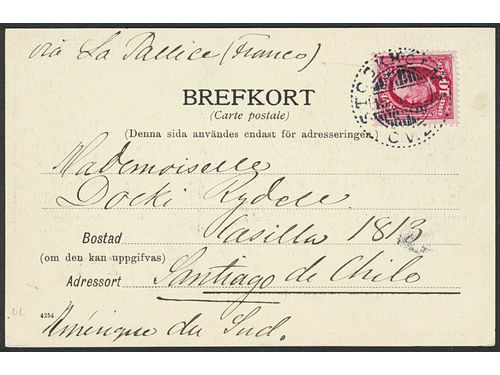 via La Pallice (Franco)
BREFKORT
(Carte postale)
(Denna sida användes endast för adresseringen
Mademoiselle
Docki Rydell.
Casilla 1813
Bostad
(om den kan uppgifvas)
Adressort Santiago de Chile
4254
Amérique du Sud.
STOCKHOLM
10